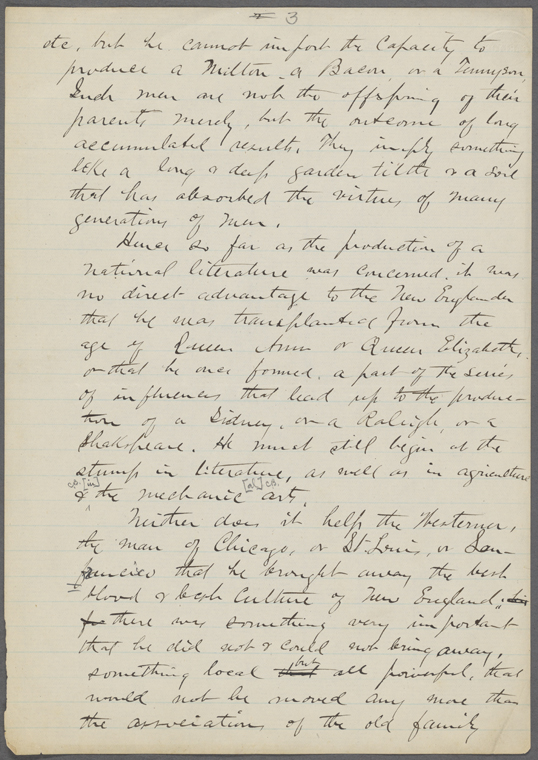 3
etc, but he cannot import the capacity to
produce a Milton a Bacon, or a Tennyson,
Such men are not the offspring of their
parents merely, but the outcome of long
accumulated results. They imply something
like a long & deep garden tilth & a soil
that has absorbed the virtues of many
generations of men.
Hence so far as the production of a
national literature was concerned, it was
no direct advantage to the New Englander
that he was transplanted from the
age of Queen Ann or Queen Elizabeth,
or that he once formed, a part of the series
of influences that lead up to the produc-
tion of a Sidney, or a Raleigh, or a
Shakspeare. He must still begin at the
stump in literature, as well as in agriculture
CB. [in] [al] CB.
& the mechanic arts.
Neither does it help the Westerner,
the man of Chicago, or St Louis, or San-
francisco that he brought away the best
blood & best culture of New England,
for there was something very important
that he did not & could not bring away,
but
something local that all powerful, that
would not be moved any more than
the associations of the old family